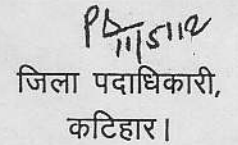 11/5/12
जिला पदाधिकारी,
कटिहार।